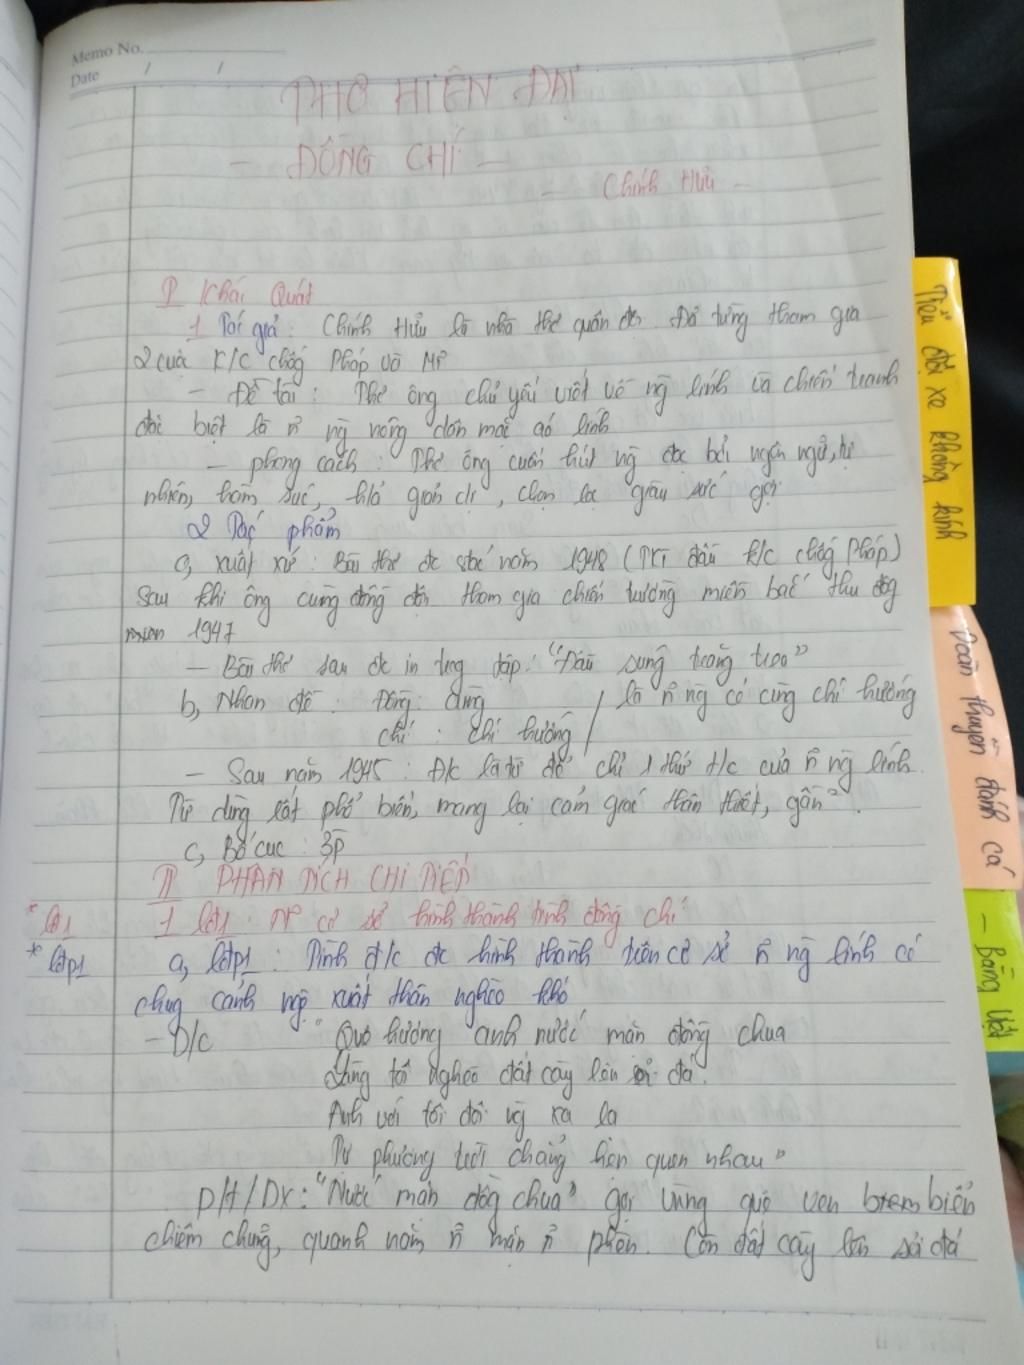 Memo No.
Date / /
THƠ HIỆN ĐẠI
- ĐỒNG CHÍ -
- Chính Hữu -
I Khái Quát
1 Tác giả : Chính Hữu là nhà thơ quân đội. Đã từng tham gia
2 cuộc K/C chống Pháp và Mĩ
- Đề tài : Thơ ông chủ yếu viết về ng lính và chiến tranh
đặc biệt là n~ ng nông dân mặc áo lính
- phong cách : Thơ ông cuốn hút ng đọc bởi ngôn ngữ, tự
nhiên, hàm súc, giản dị, chọn lọc giàu sức gợi
2 Tác phẩm
a, xuất xứ : Bài thơ đc stác năm 1948 (TKì đầu k/c chống Pháp)
Sau khi ông cùng đồng đội tham gia chiến trường miền bắc thu đông
1947
- Bài thơ sau đc in trong tập: "Đầu súng trăng treo"
b, Nhan đề : Đồng : cùng / là n~ ng có cùng chí hướng
chí : chí hướng
- Sau năm 1945 : Đ/c là từ để chỉ 1 thứ t/c của n~ ng lính.
Từ dùng rất phổ biến, mang lại cảm giác thân thiết, gần².
c, Bố cục : 3P
II PHÂN TÍCH CHI TIẾT
* lđ1
1 lđ1 : N~ cơ sở hình thành tình đồng chí
* lđp1
a, lđp1 : Tình đ/c đc hình thành trên cơ sở n~ ng lính có
chug cảnh ngộ xuất thân nghèo khó
- D/c "Quê hương anh nước mặn đồng chua
Làng tôi nghèo đất cày lên sỏi đá.
Anh với tôi đôi ng xa lạ
Tự phương trời chẳng hẹn quen nhau"
PH/DX : "Nước mặn đồng chua" gợi vùng quê ven biển
chiêm chũng, quanh năm n~ mặn n~ phèn. Còn đất cày lên sỏi đá
Tiểu đội xe không kính
Đoàn thuyền đánh cá
- Bằng Việt